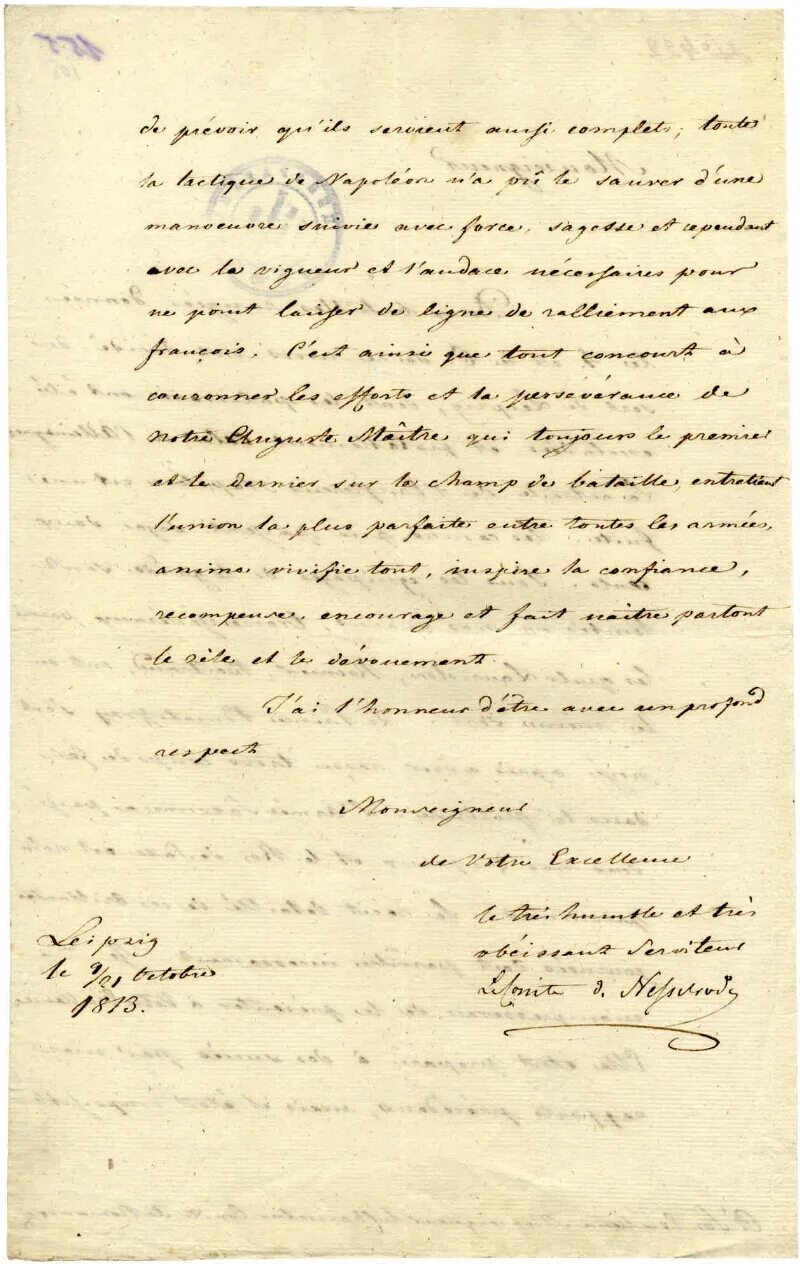 155
de prévoir qu'ils seroient aussi complets; toute
la tactique de Napoléon n'a pû le sauver d'une
manoeuvre suivie avec force, sagesse et cependant
avec la vigueur et l'audace nécessaires pour
ne point laisser de ligne de ralliement aux
françois. C'est ainsi que tout concourt à
couronner les efforts et la persévérance de
notre Auguste Maître qui toujours le premier
et le dernier sur le champ de bataille, entretient
l'union la plus parfaite entre toutes les armées,
anime vivifie tout, inspire la confiance,
recompense, encourage et fait naître partout
le zèle et le dévouement.
J'ai l'honneur d'être avec un profond
respect
Monseigneur
de Votre Excellence
le très humble et très
obéissant Serviteur
Le Comte d. Nesselrode
Leipzig
le 9/21 Octobre
1813.